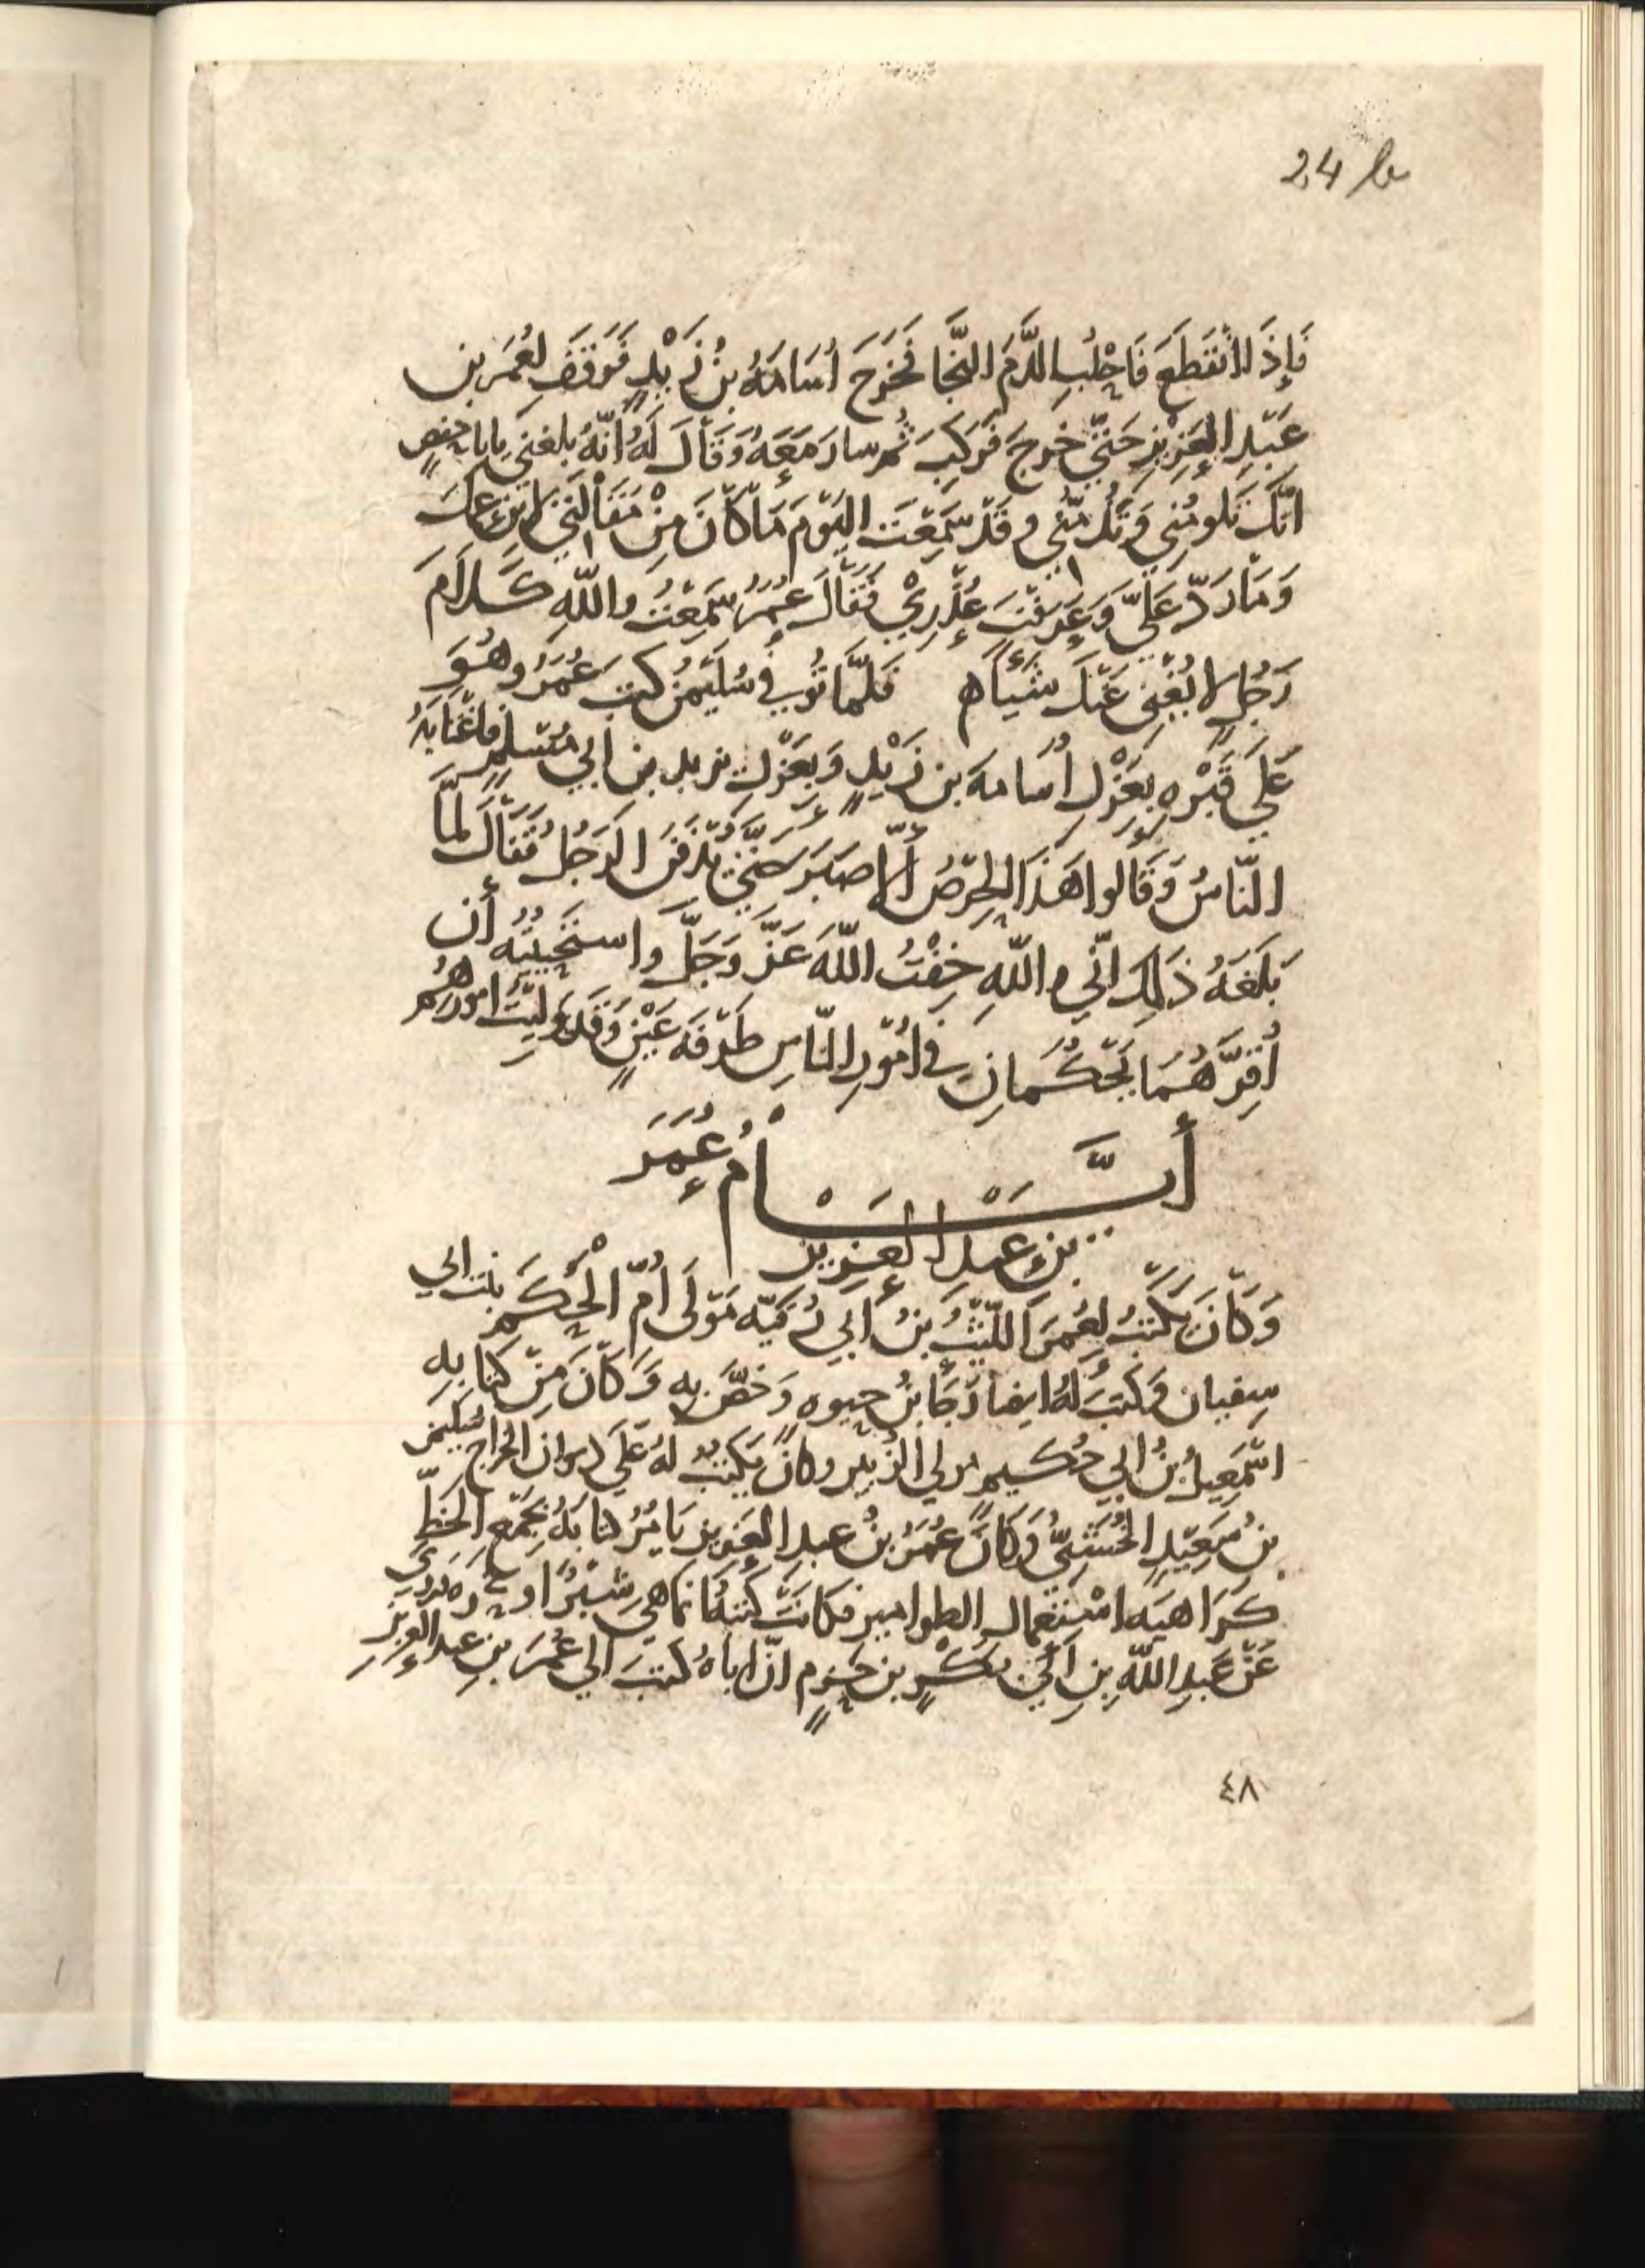 24 b
فَإِذَا انْقَطَعَ فَاحْلُبِ الدَّمَ النَّجَا فَخَرَجَ أُسَامَةُ بنُ زَيْدٍ فَوَقَفَ لِعُمَرَ بنِ
عَبْدِ العَزِيْزِ حَتّى خَرجَ فَرَكِبَ ثُمّ سارَ مَعَهُ وَقَالَ لَهُ أَنّهُ بلغني يابا حفصٍ
انّكَ تَلومُني وتَذُمّني وقَدْ سَمِعْتَ اليَوْمَ مَا كَانَ مِنْ مَقَالَتي لابن عمكَ
وَمَا رَدّ عَلَيّ وَعَرَفْتَ عُذْرِيْ فَقَالَ عُمَرُ سَمِعْتُ واللّهِ كَلَامَ
رَجُلٍ لا يُغْنِى عَنْكَ شَيْئًا ه فَلَمّا تُوُفِيَ سُلَيْمنُ كتبَ عُمَرُ وهُوَ
عَلَى قَبْرِهِ بِعَزْلِ أُسَامةَ بن زَيْدٍ وَبِعَزْلِ يزيد بن أبي مُسْلِمٍ فاغْتَابَهُ
النّاسُ وَقَالوا هَذَا الحِرْصُ ألا صَبَرَ حَتّى يُدْفَنَ الرَجُلُ فَقَالَ لَمَّا
بَلَغَهُ ذَلِكَ انّي واللّهِ خِفْتُ اللّهَ عَزّ وَجَلَّ واستَحْيَيْتُهُ أن
أُقِرَّهُمَا يَحْكُمانِ في أُمُورِ النّاسِ طَرْفَةَ عَيْنٍ وَقَد وَلِيْتُ امورهُم
أَيَّــامُ عُمَرَ
بنِ عبدِ العزيز
وَكَانَ يَكْتُبُ لِعُمَرَ اللّيْثُ بنُ أَبي رُقَيّة مَوْلَى أُمّ الحَكَم بنت ابي
سفيان وكتبَ لهُ ايضا رَجَاءُ بنُ حيوه وَخصَّ به وَكَانَ مِنْ كتابه
اسْمَعِيلُ بنُ ابي حُكَيم مولى الزُبير وكانَ يَكتبُ لهُ عَلَى ديوان الخراج سُلَيْمن
بنُ سَعِيْدٍ الخُشَنِيُّ وَكَانَ عُمَرُ بنُ عبد العَزيز يَامُرُ كتابَهُ بجَمْعِ الخَطِّ
كَرَاهيَة اسْتِعْمال الطوامير فكانتْ كُتبُهُ انما هي شبْرًا او
عَنْ عَبدِ اللّهِ بنِ أَبي بَكْرٍ بن حَزمٍ انّ اباهُ كتبَ الى عُمَرَ بن عبد العزيز
٤٨